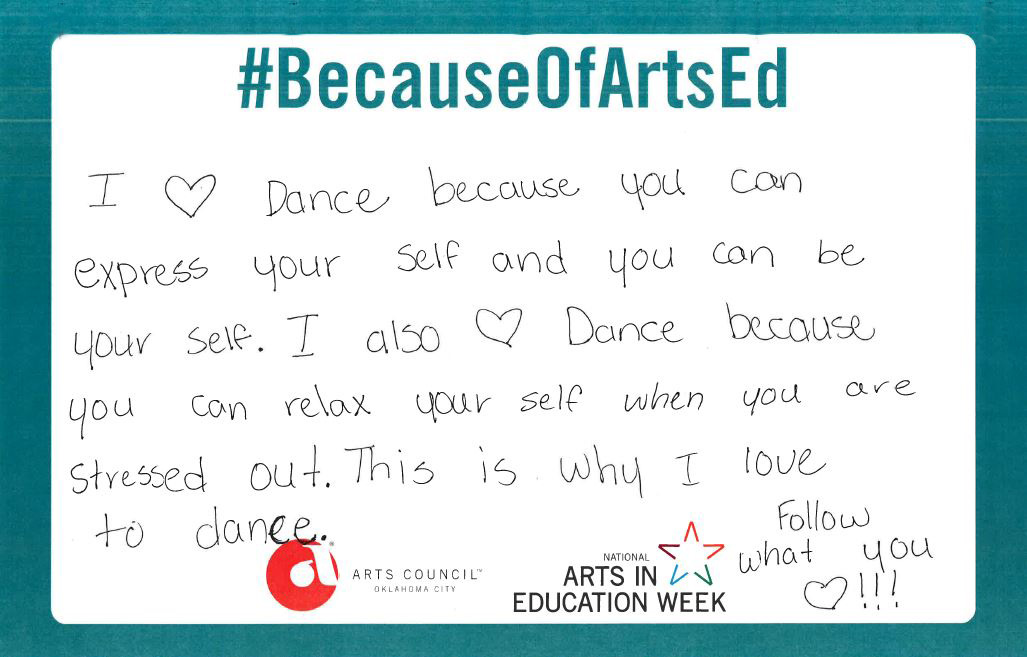 #BecauseOfArtsEd
I ♡ Dance because you can
express your self and you can be
your self. I also ♡ Dance because
you can relax your self when you are
stressed out. This is why I love
to dance.
Follow
what you
♡!!!
a
ARTS COUNCIL™
OKLAHOMA CITY
NATIONAL
ARTS IN
EDUCATION WEEK